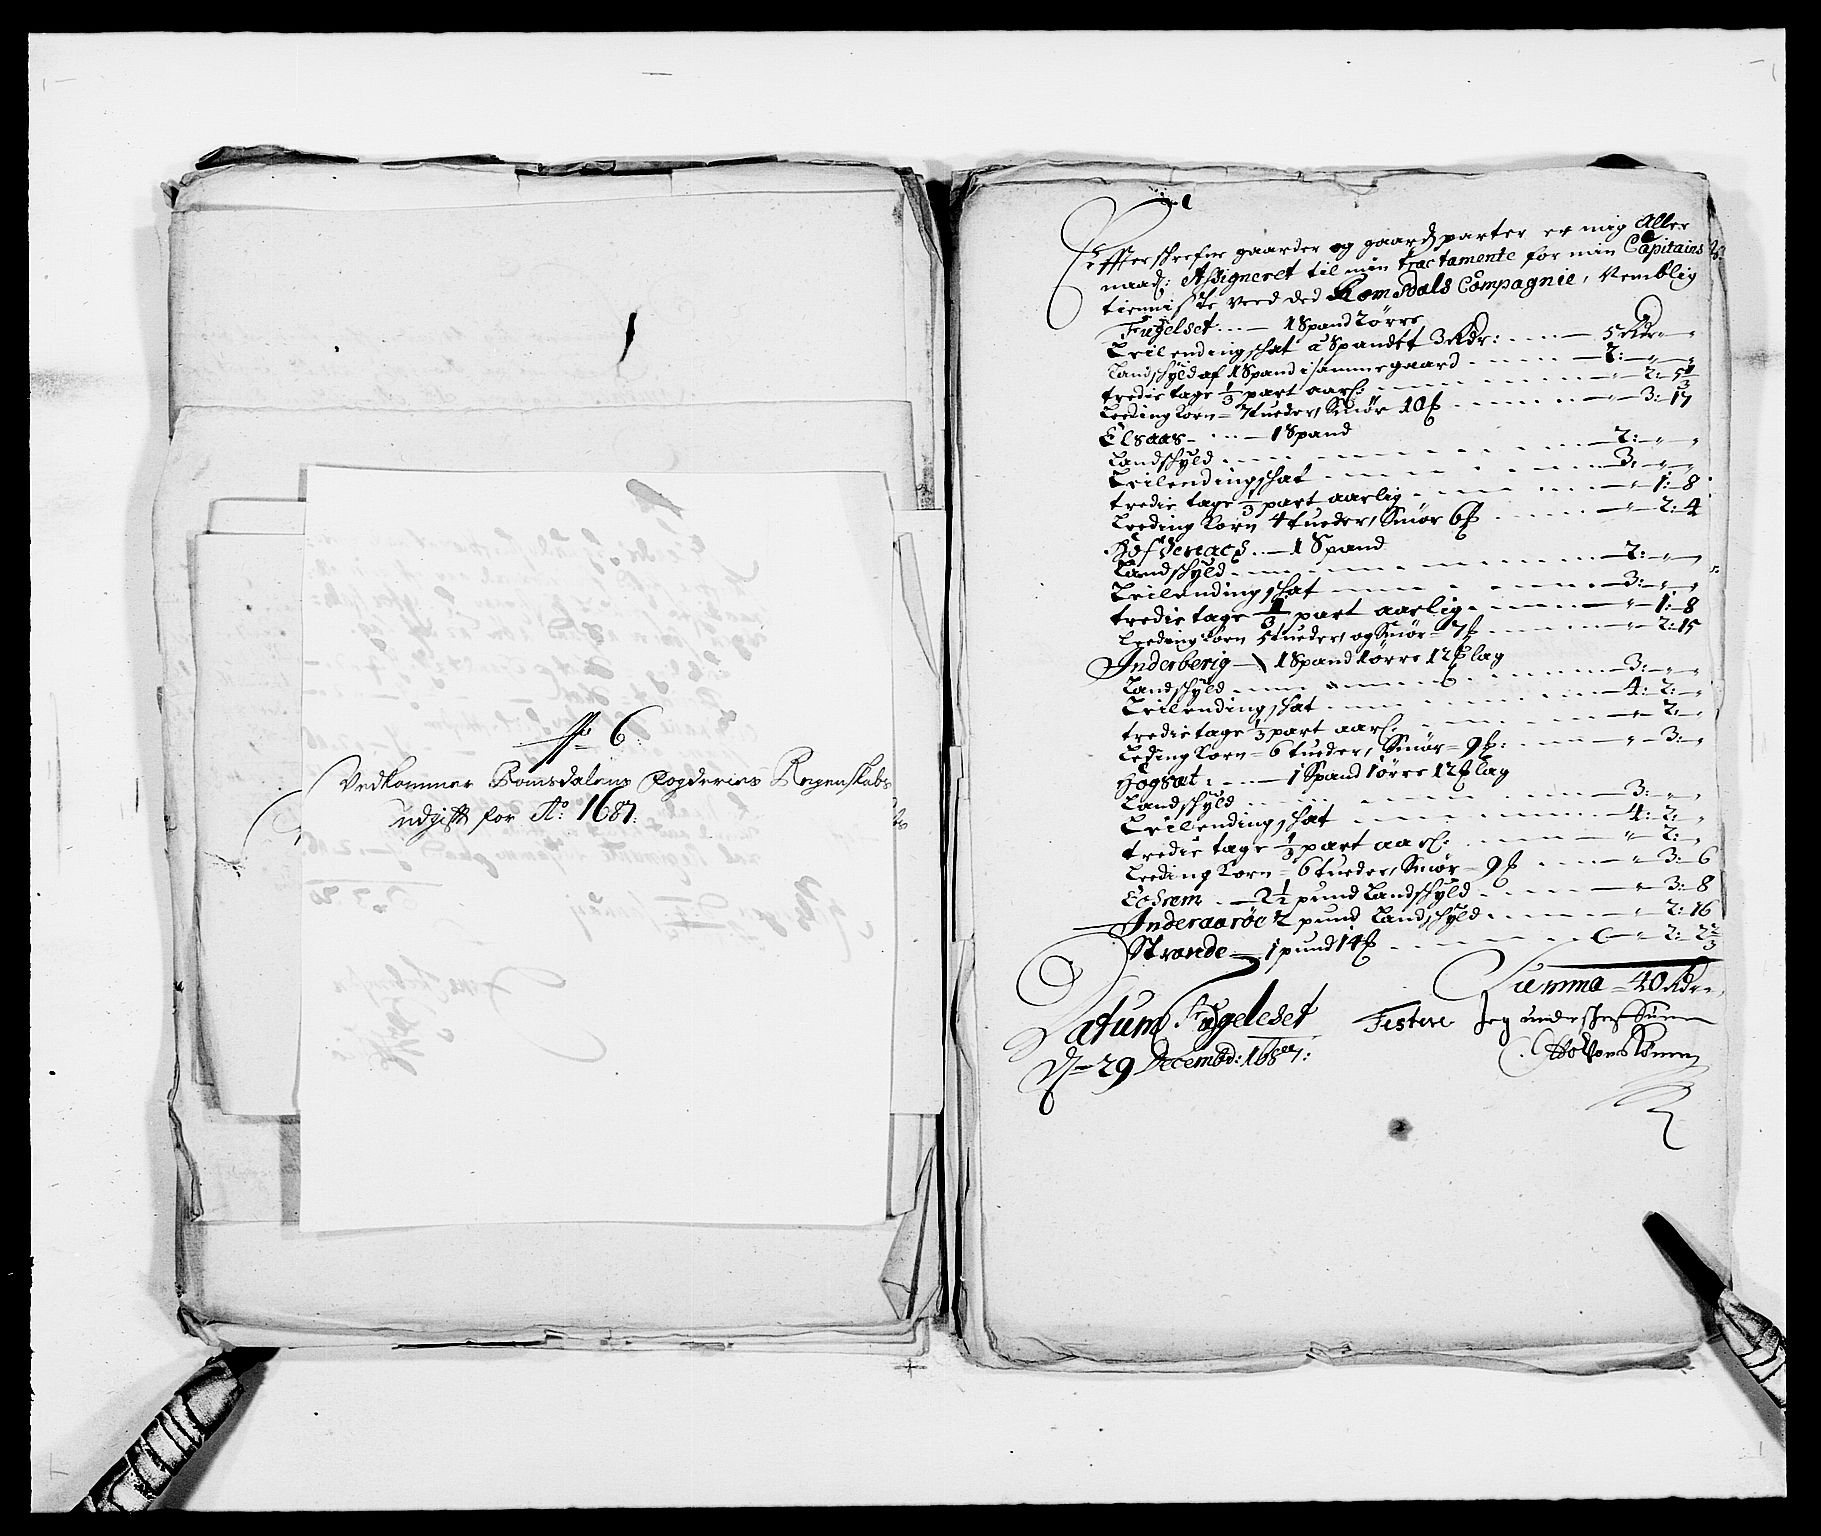 No 6:
Vedkommer Romsdalens Fogderies Regenskabs
udgift for Ao: 1687:
Effterschrefne gaarder og gaardsparter er mig Aller
naad: Assigneret til min tractamente for min Capitains
tienniste veed ded Romsdals Compagnie, Nemblig
Fugelset ... — 1 Spand 2 ørre
Leilendingschat a Spandet 3 Rdr: .... — 5 Rdr „ „
Landschyld af 1 Spand i samme gaard ..... — 2: — „ — „
tredie tage 1/3 part aarl: ........ „ — 2: 5 1/3
Leeding Korn = 7 tueder, Smør 10 ℔ ...... „ — 3: — 17
Elsaas — ... — 1 Spand
Landschyld ........ — 2: — „ — „
Leilendingschat ........ — 3: — „ — „
tredie tage 1/3 part aarlig ........ „ — 1: — 8
Leeding Korn 4 tueder, Smør 6 ℔ ...... „ — 2: 4
... — 1 Spand
Landschyld ........ — 2: — „ — „
Leilendingschat ........ — 3: — „ — „
tredie tage 1/3 part aarlig ...... — „ — 1: — 8
Leeding Korn 5 tueder, og Smør = 7 ℔ ...... „ — 2: — 15
Inderberig — 1 Spand 1 ørre 12 ℔ lag
Landschyld ........ — 3: — „ — „
Leilendingschat ........ — 4: — 2: — „
tredie tage 1/3 part aarl: ........ — „ — 2: — „
Leding Korn = 6 tueder, Smør = 9 ℔: ...... — „ — 3: — „
Hogsæt: .... — 1 Spand 1 ørre 12 ℔ lag
Landschyld ........ — 3: — „ — „
Leilendingschat ........ — 4: — 2: — „
tredie tage 1/3 part aarl: ........ — „ — 2: — „
Leeding Korn = 6 tueder, Smør = 9 ℔ .... — „ — 3: — 6
... — 2 1/2 pund Landschyld ...... — „ — 3: — 8
Inderaarøe 2 pund Landschyld ...... — „ — 2: 16
Strande — 1 pund 14 ℔ ........ — „ — 2: — 2 2/3
Summa = 40 Rdr
Datum Fugleset
D — 29 Decembr: 1687:
Testerer Jeg underschrefven